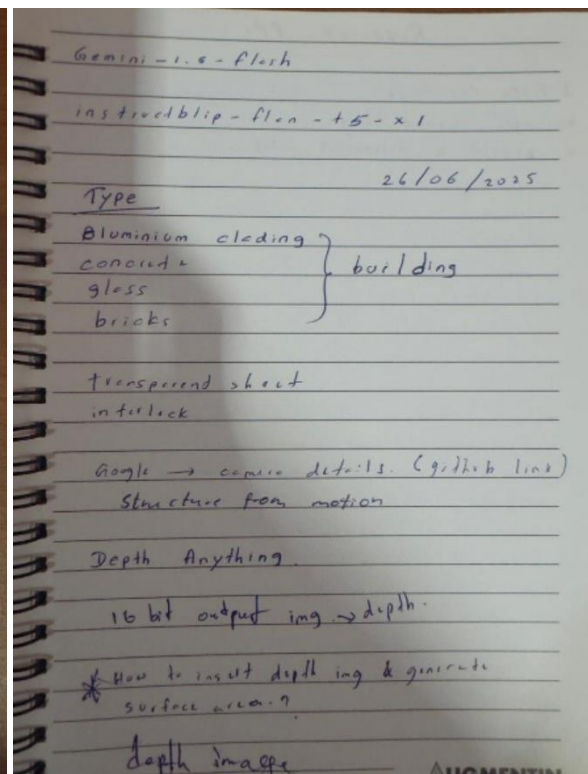 Gemini - 1.5 - flash
instructblip - flan - t5 - xl
26/06/2025
Type
Aluminium clading
concrete
glass
bricks
building
transperend sheet
interlock
Google → camera details. (github link)
Structure from motion
Depth Anything.
16 bit output img → depth.
* How to insert depth img & generate
surface area.?
depth image
AUGMENTIN